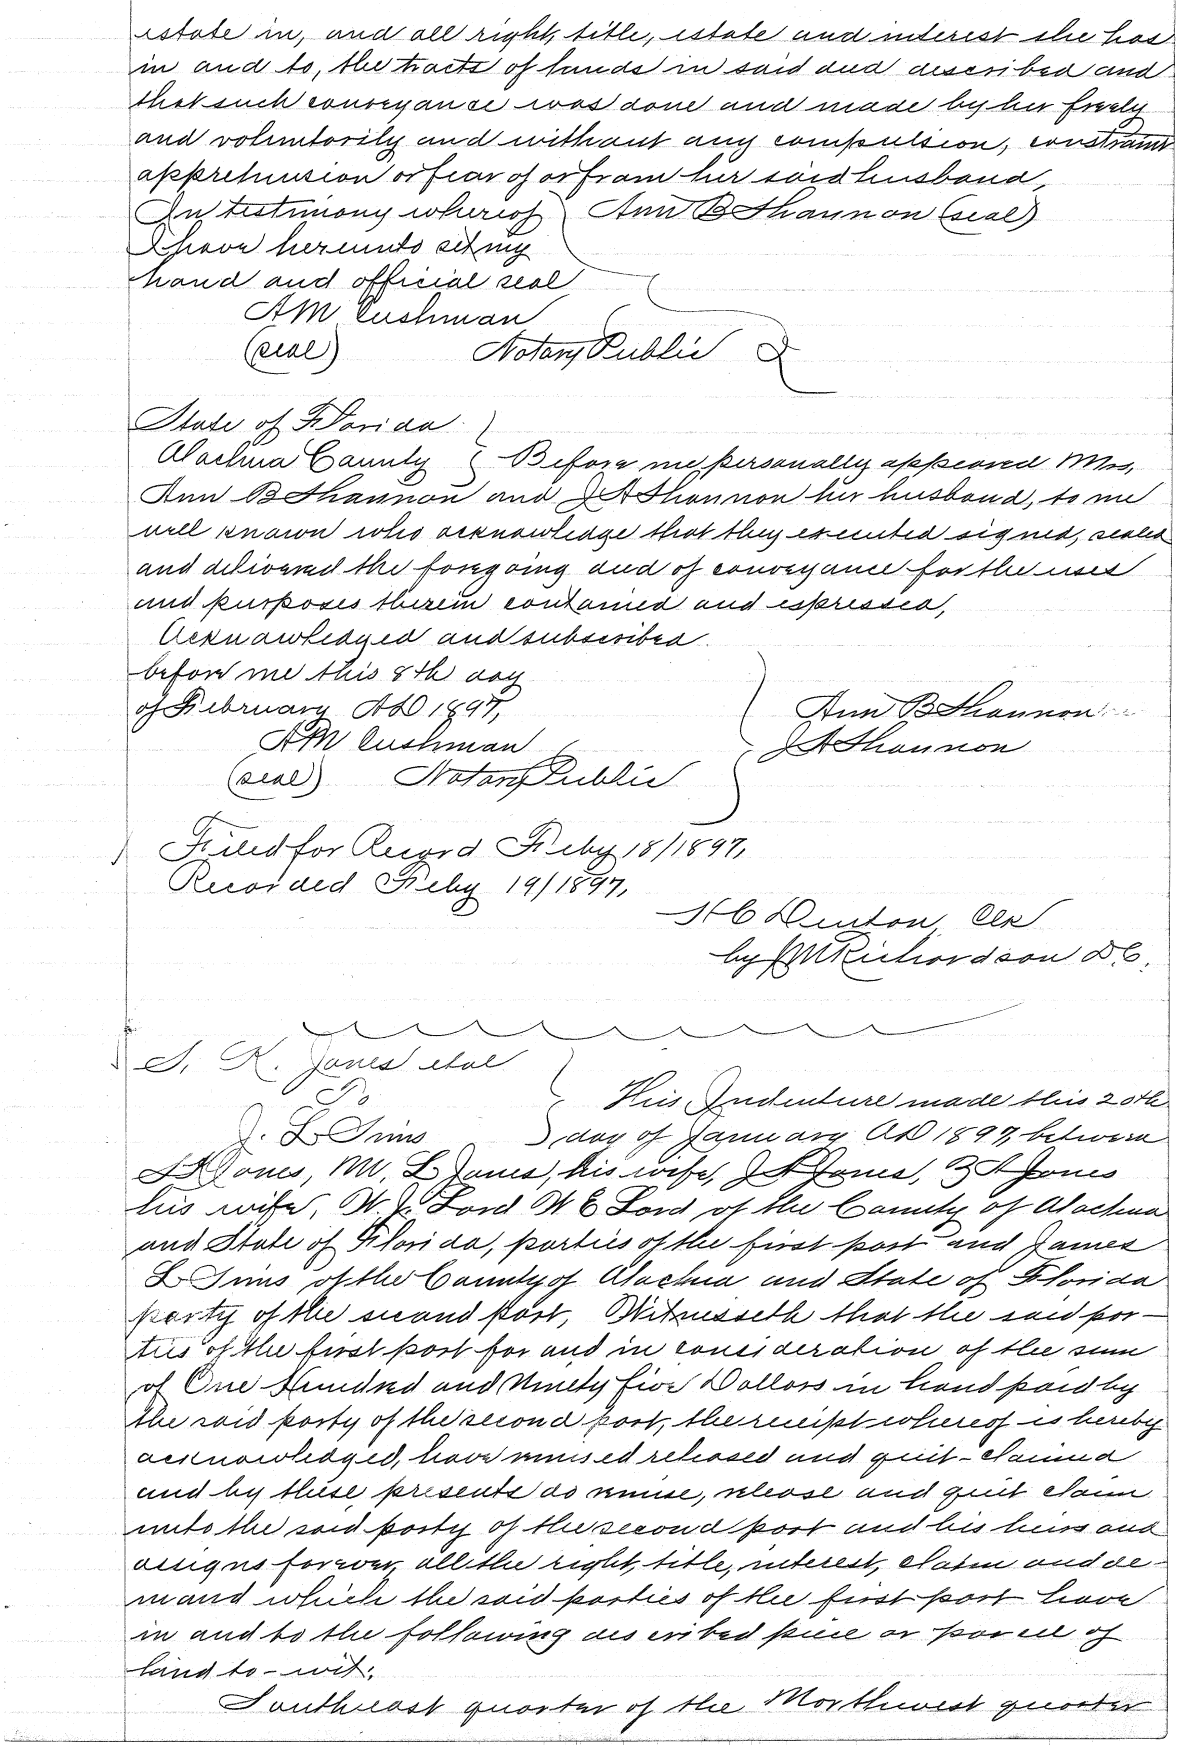 estate in, and all right, title, estate and interest she has
in and to, the tracts of lands in said deed described and
that such conveyance was done and made by her freely
and voluntarily and without any compulsion, constraint
apprehension or fear of or from her said husband,
In testimony whereof Ann B Shannon (seal)
I have hereunto set my
hand and official seal
AM Cushman
(seal) Notary Public
State of Florida
Alachua County Before me personally appeared Mrs,
Ann B Shannon and J A Shannon her husband, to me
well known who acknowledge that they executed signed, sealed
and delivered the foregoing deed of conveyance for the uses
and purposes therein contained and expressed,
Acknowledged and subscribed
before me this 8th day
of February AD 1897, Ann B Shannon
AM Cushman J A Shannon
(seal) Notary Public
Filed for Record Feby 18/1897,
Recorded Feby 19/1897,
H C Denton, Clk
by JM Richardson D C,
S. K. Jones etal
To This Indenture made this 20th
J. L Sims day of January AD 1897, between
Jones, M, L Jones, his wife, Jones, Jones
his wife, W. J. Lord W E Lord of the County of Alachua
and State of Florida, parties of the first part and James
L Sims of the County of Alachua and State of Florida
party of the second part, Witnesseth that the said par-
ties of the first part for and in consideration of the sum
of One Hundred and Ninety five Dollars in hand paid by
the said party of the second part, the receipt whereof is hereby
acknowledged, have remised released and quit-claimed
and by these presents do remise, release and quit claim
unto the said party of the second part and his heirs and
assigns forever, all the right, title, interest, claim and de-
mand which the said parties of the first part have
in and to the following described piece or parcel of
land to-wit:
Southeast quarter of the Northwest quarter